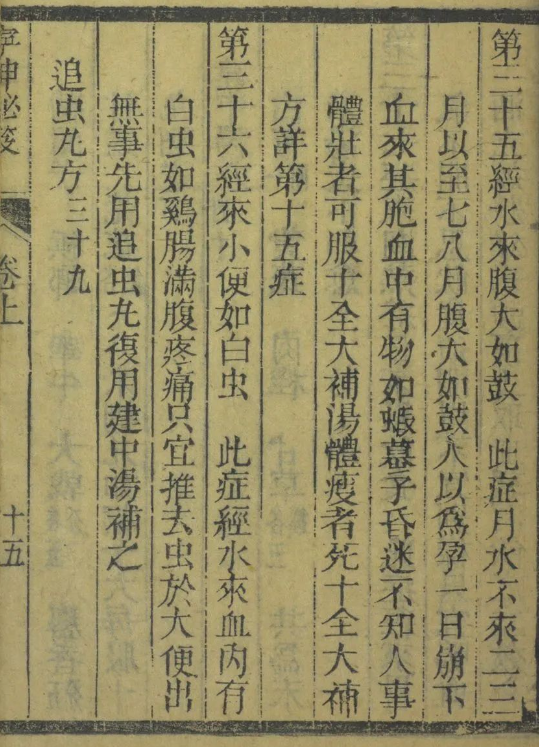 第三十五經水來腹大如鼓　此症月水不來二三
月以至七八月腹大如鼓人以爲孕一日崩下
血來其胞血中有物如蝦蟇子昏迷不知人事
體壯者可服十全大補湯體瘦者死十全大補
方詳第十五症
第三十六經來小便如白虫　此症經水來血內有
白虫如鷄腸滿腹疼痛只宜推去虫於大便出
無事先用追虫丸復用建中湯補之
追虫丸方三十九
寧坤秘笈　卷上　十五